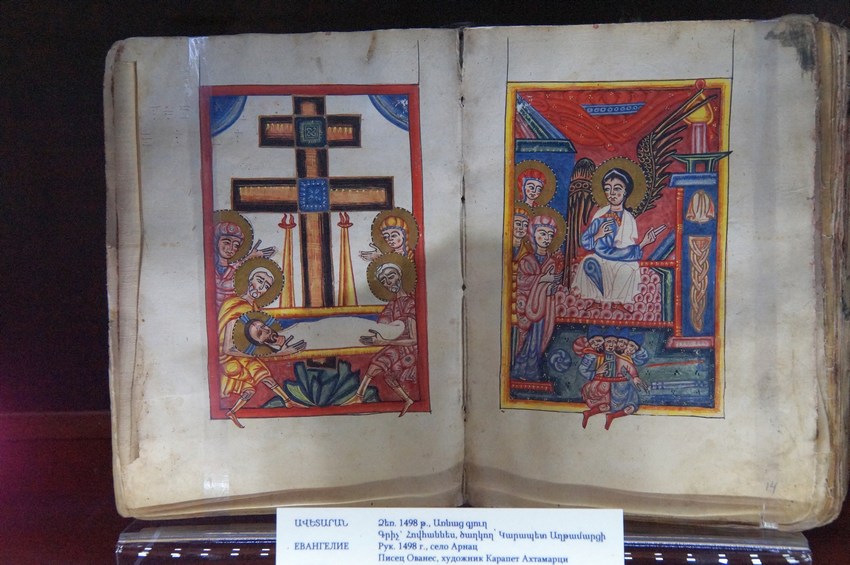 ԱՎԵՏԱՐԱՆ Ձեռ. 1498 թ., Առնաց գյուղ
Գրիչ՝ Հովհաննես, ծաղկող՝ Կարապետ Աղթամարցի
ЕВАНГЕЛИЕ Рук. 1498 г., село Арнац
Писец Ованес, художник Карапет Ахтамарци
14